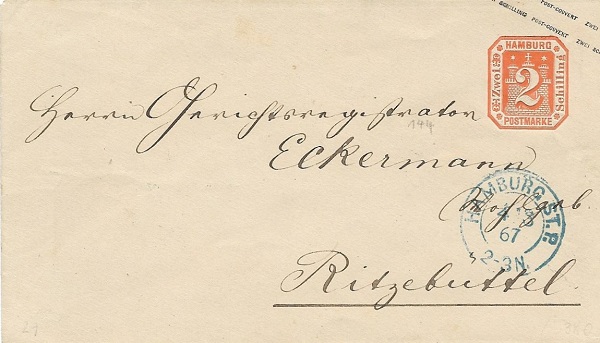 SCHILLING POST-COUVERT ZWEI
SCHILLING POST-COUVERT ZWEI
HAMBURG
Zwei
2
Schilling
POSTMARKE
Herrn Gerichtsregistrator
144
Eckermann
HAMBURG ST.P.
4
67
2-3N.
Ritzebüttel